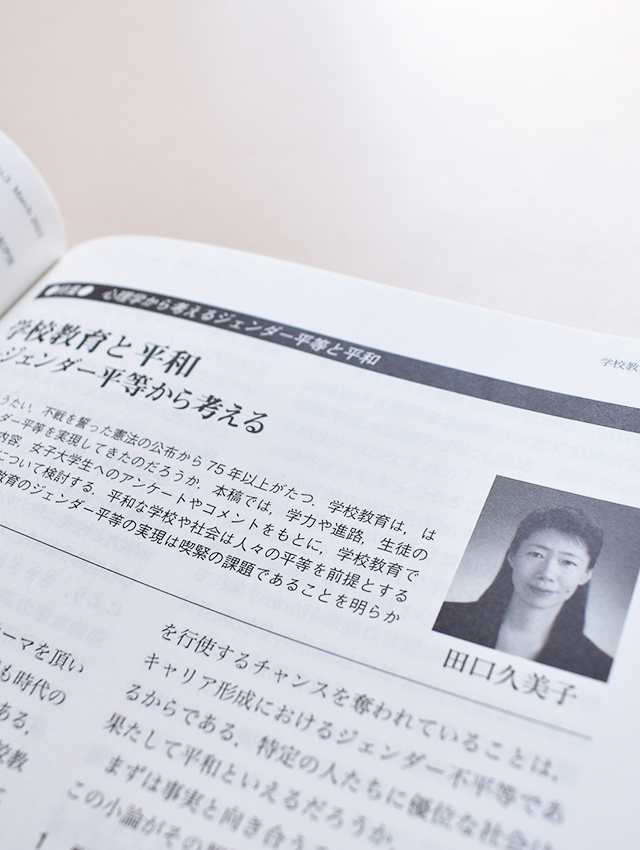 March 202
学校教
心理学から考えるジェンダー平等と平和
学校教育と平和
ジェンダー平等から考える
うたい,不戦を誓った憲法の公布から75年以上がたつ.学校教育は,は
ダー平等を実現してきたのだろうか.本稿では,学力や進路,生徒の
内容,女子大学生へのアンケートやコメントをもとに,学校教育で
について検討する.平和な学校や社会は人々の平等を前提とする
教育のジェンダー平等の実現は喫緊の課題であることを明らか
田口久美子
ーマを頂い
も時代の
ある.
校教
を行使するチャンスを奪われていることは,
キャリア形成におけるジェンダー不平等であ
るからである.特定の人たちに優位な社会は
果たして平和といえるだろうか.
まずは事実と向き合う
この小論がその
1